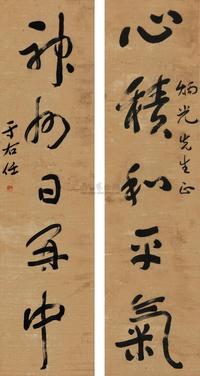 心積和平氣
炳光先生正
神州日再中
于右任